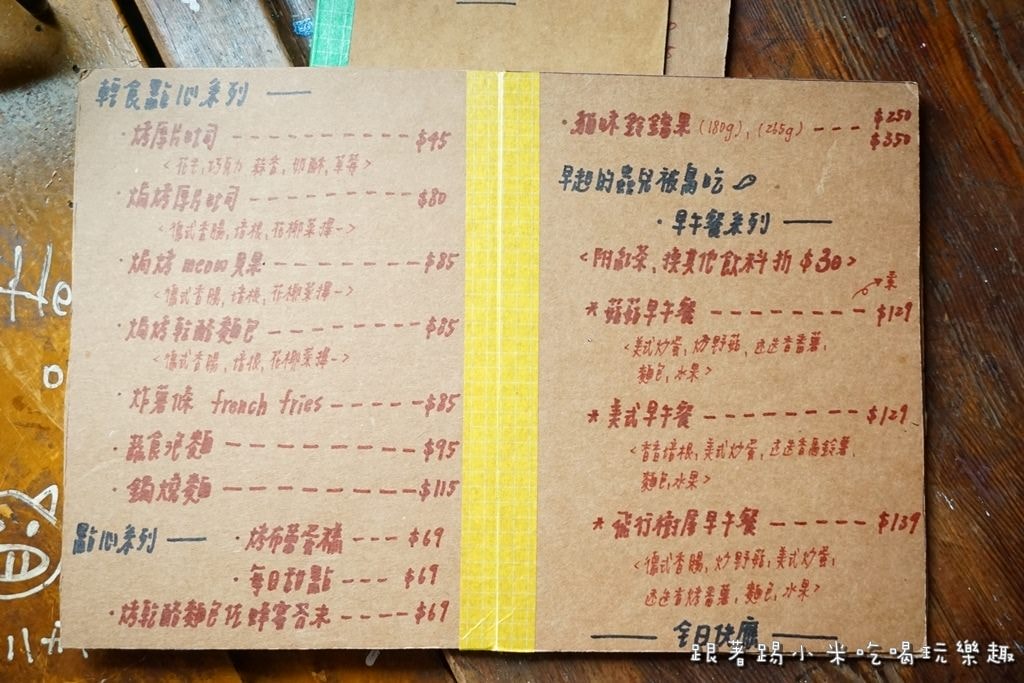 輕食點心系列 ——
·烤厚片吐司 ---------- $45
<花生,巧克力 蒜香,奶酥,草莓>
·焗烤厚片吐司 ---------- $80
<德式香腸,培根,花椰菜擇一>
·焗烤meow貝果 ---------- $85
<德式香腸,培根,花椰菜擇一>
·焗烤乾酪麵包 ---------- $85
<德式香腸,培根,花椰菜擇一>
·炸薯條 french fries ----- $85
·蔬食泡麵 ---------- $95
·鍋燒麵 ---------- $115
點心系列 —— ·烤布蕾蛋糕 --- $69
·每日甜點 --- $69
·烤乾酪麵包佐蜂蜜杏末 ---- $69
·貓咪鈴鐺果(180g),(265g) --- $250
$350
早起的蟲兒被鳥吃
·早午餐系列 ——
<附紅茶,換其他飲料折$30>
素
*菇菇早午餐 -------- $129
<美式炒蛋,炒野菇,迷迭香番薯,
麵包,水果>
*美式早午餐 -------- $129
<香香培根,美式炒蛋,迷迭香馬鈴薯,
麵包,水果>
*飛行樹屋早午餐 ----- $139
<德式香腸,炒野菇,美式炒蛋,
迷迭香烤番薯,麵包,水果>
—— 全日供應 ——
He
跟著踢小米吃喝玩樂趣